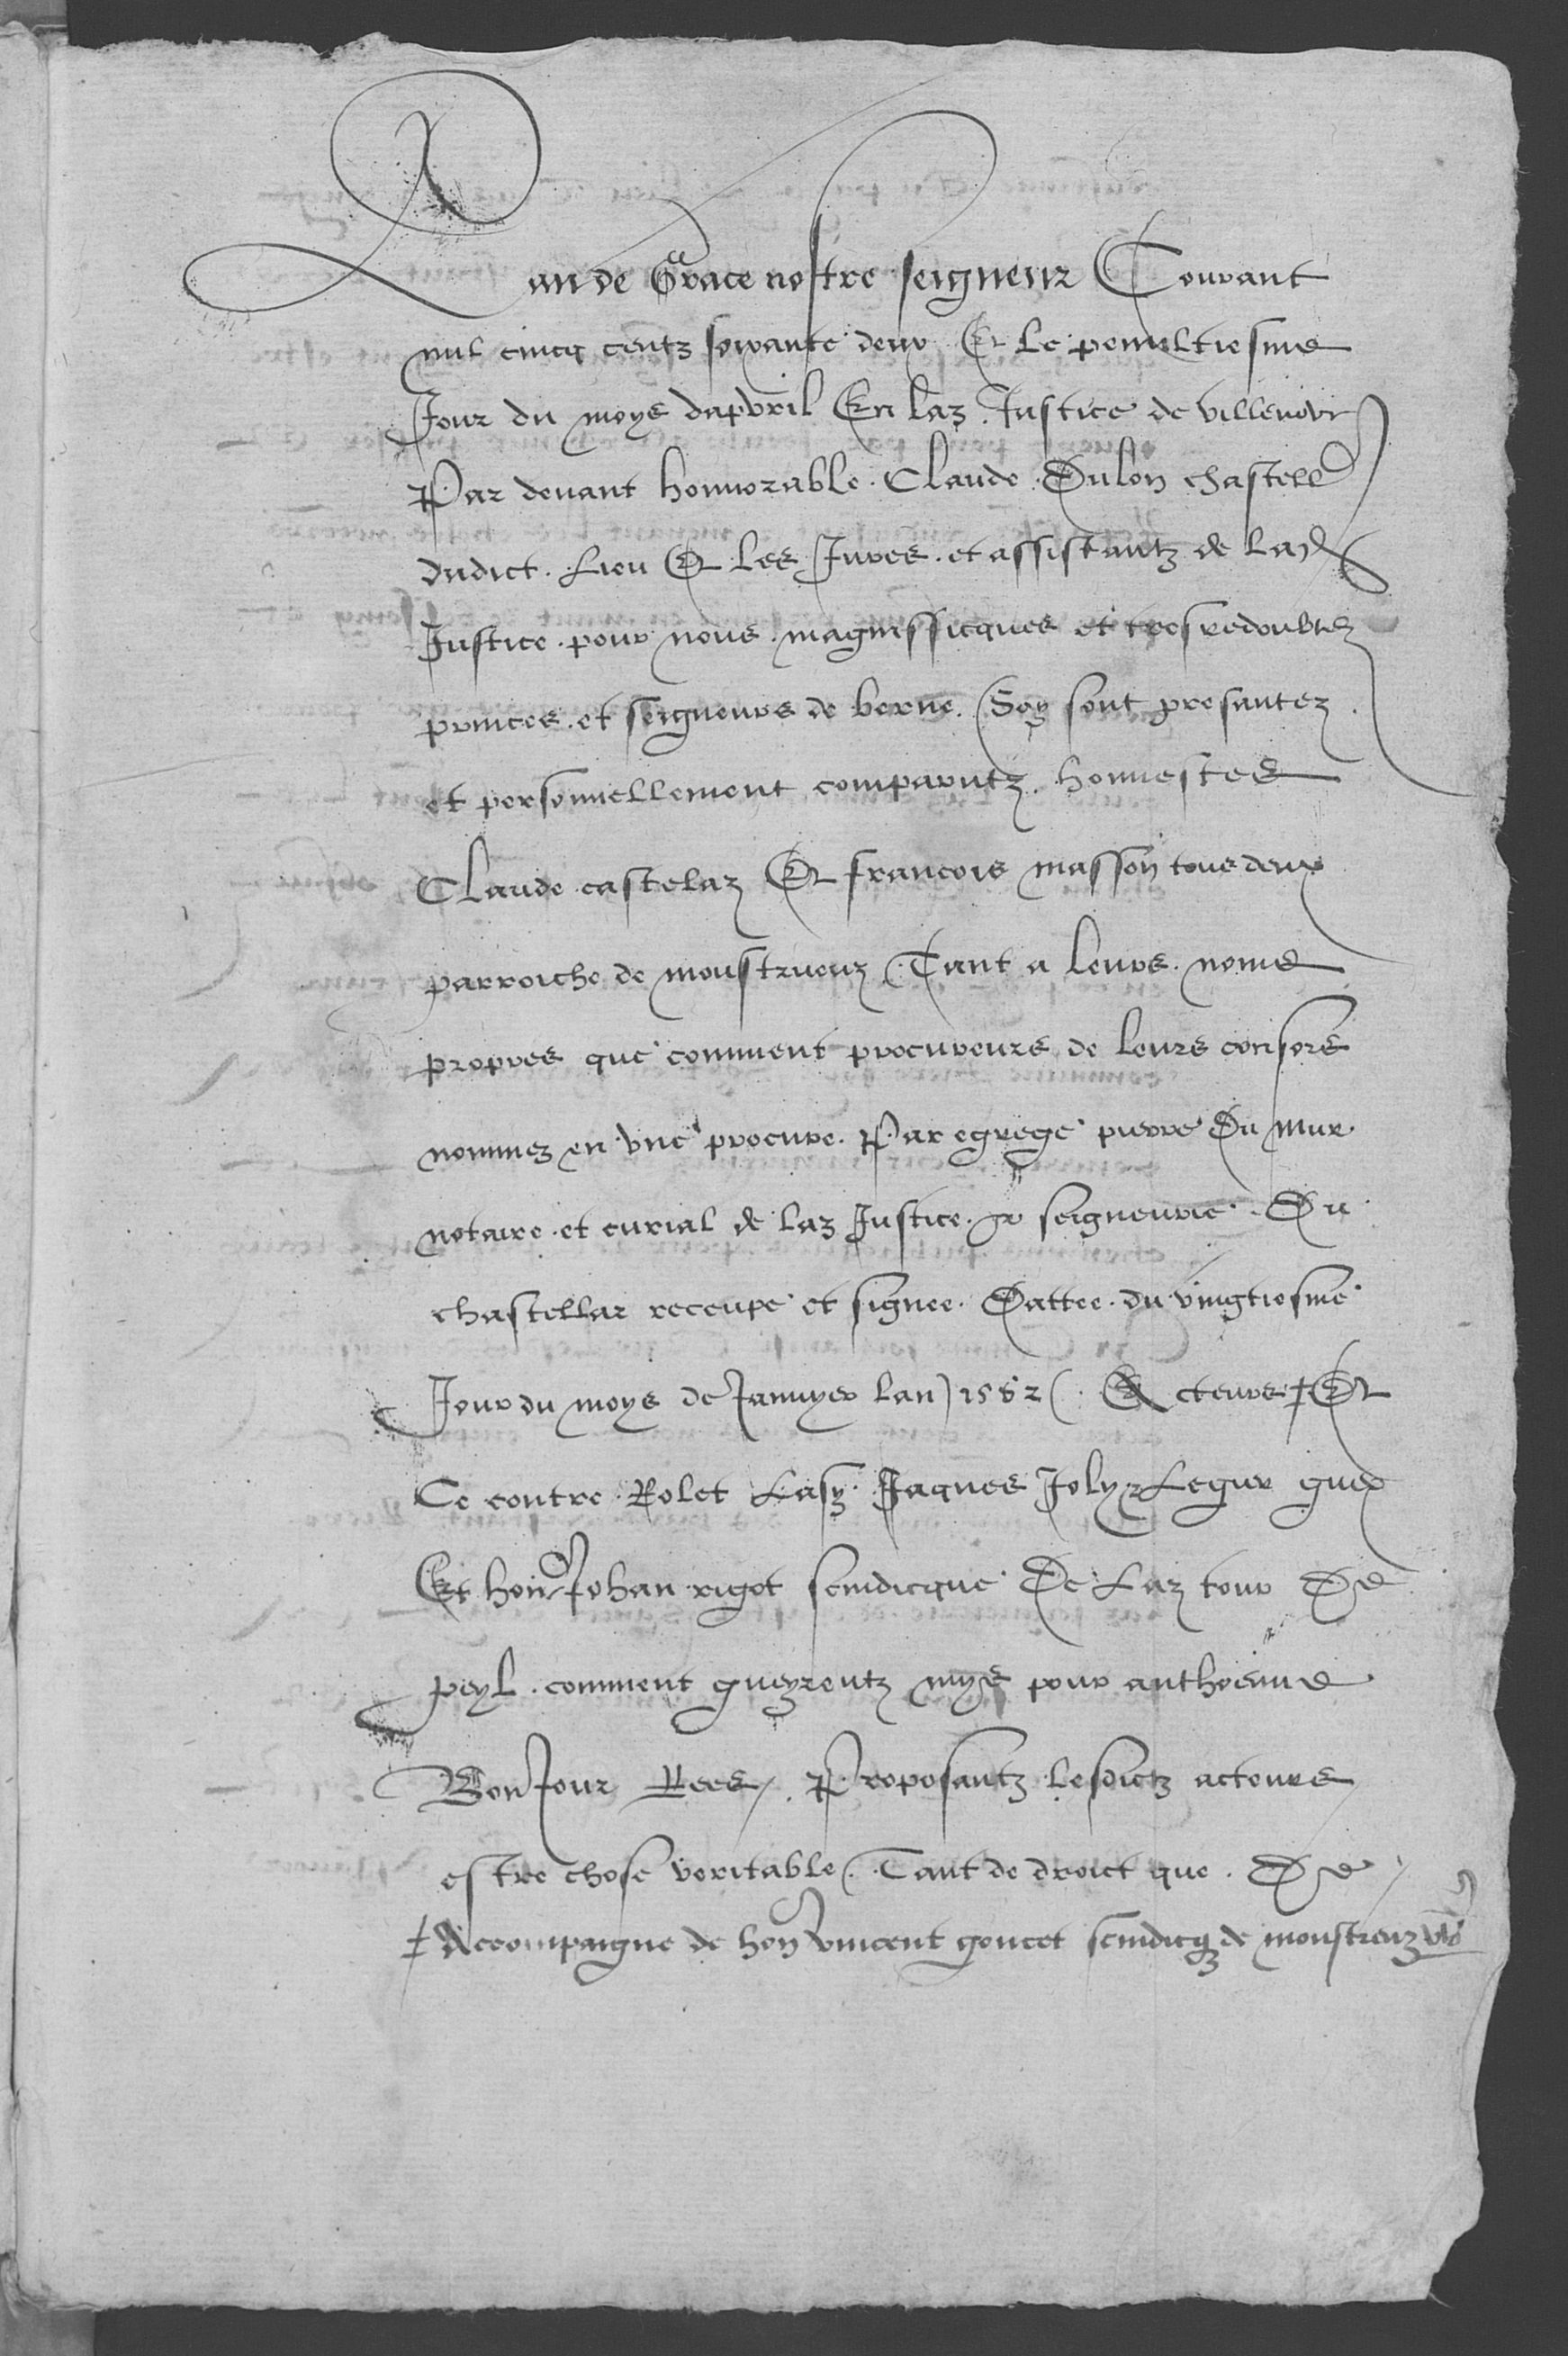 Lan de Grace nostre seigneur Courant
mil cincq centz soixante deux Et le penultiesme
Jour du moys dapvril En laz Justice de villenove
Par devant honnorable Claude Dulon chastell
dudict Lieu Et les Jures et assistantz de lad
Justice pour nous magnifficques et tresredoubtez
princes et seigneurs de berne Soy sont presantez
et personnellement comparutz honnestes
Claude castelaz Et francois masson tous deux
parroiche de monstrueuz Tant a leurs noms
propres que comment procureurs de leurs consors
nommez en une procure Par egrege pierre Du Mur
notaire et curial de laz Justice et seigneurie Du
chastellar receupe et signee Dattee du vingtiesme
Jour du moys de Janvyer lan 1562 Acteurs ‡ Et
Ce contre Rolet Lasz Jaques Joly Leguer guex
Et hon Johan rigot scindicque De Laz tour De
peyl comment gueyrentz mys pour anthoenne
BonJour Rees Proposantz lesdictz acteurs
estre chose veritable Tant de droict que De
‡ Accompaigne de hon vincent goncet scindicq de monstreuz